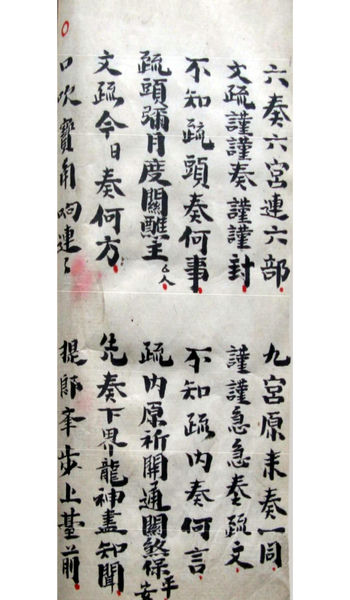 六奏六宮連六部
九宮原来奏一同
文疏謹謹奏謹謹封
謹謹急急奏疏文
不知疏頭奏何事
不知疏內奏何言
疏頭彌月度關醮主么人
疏內原祈開通關煞保平安
文疏今日奏何方
先奏下界龍神盡知聞
口吹寶角响連〻
提師李步上臺前